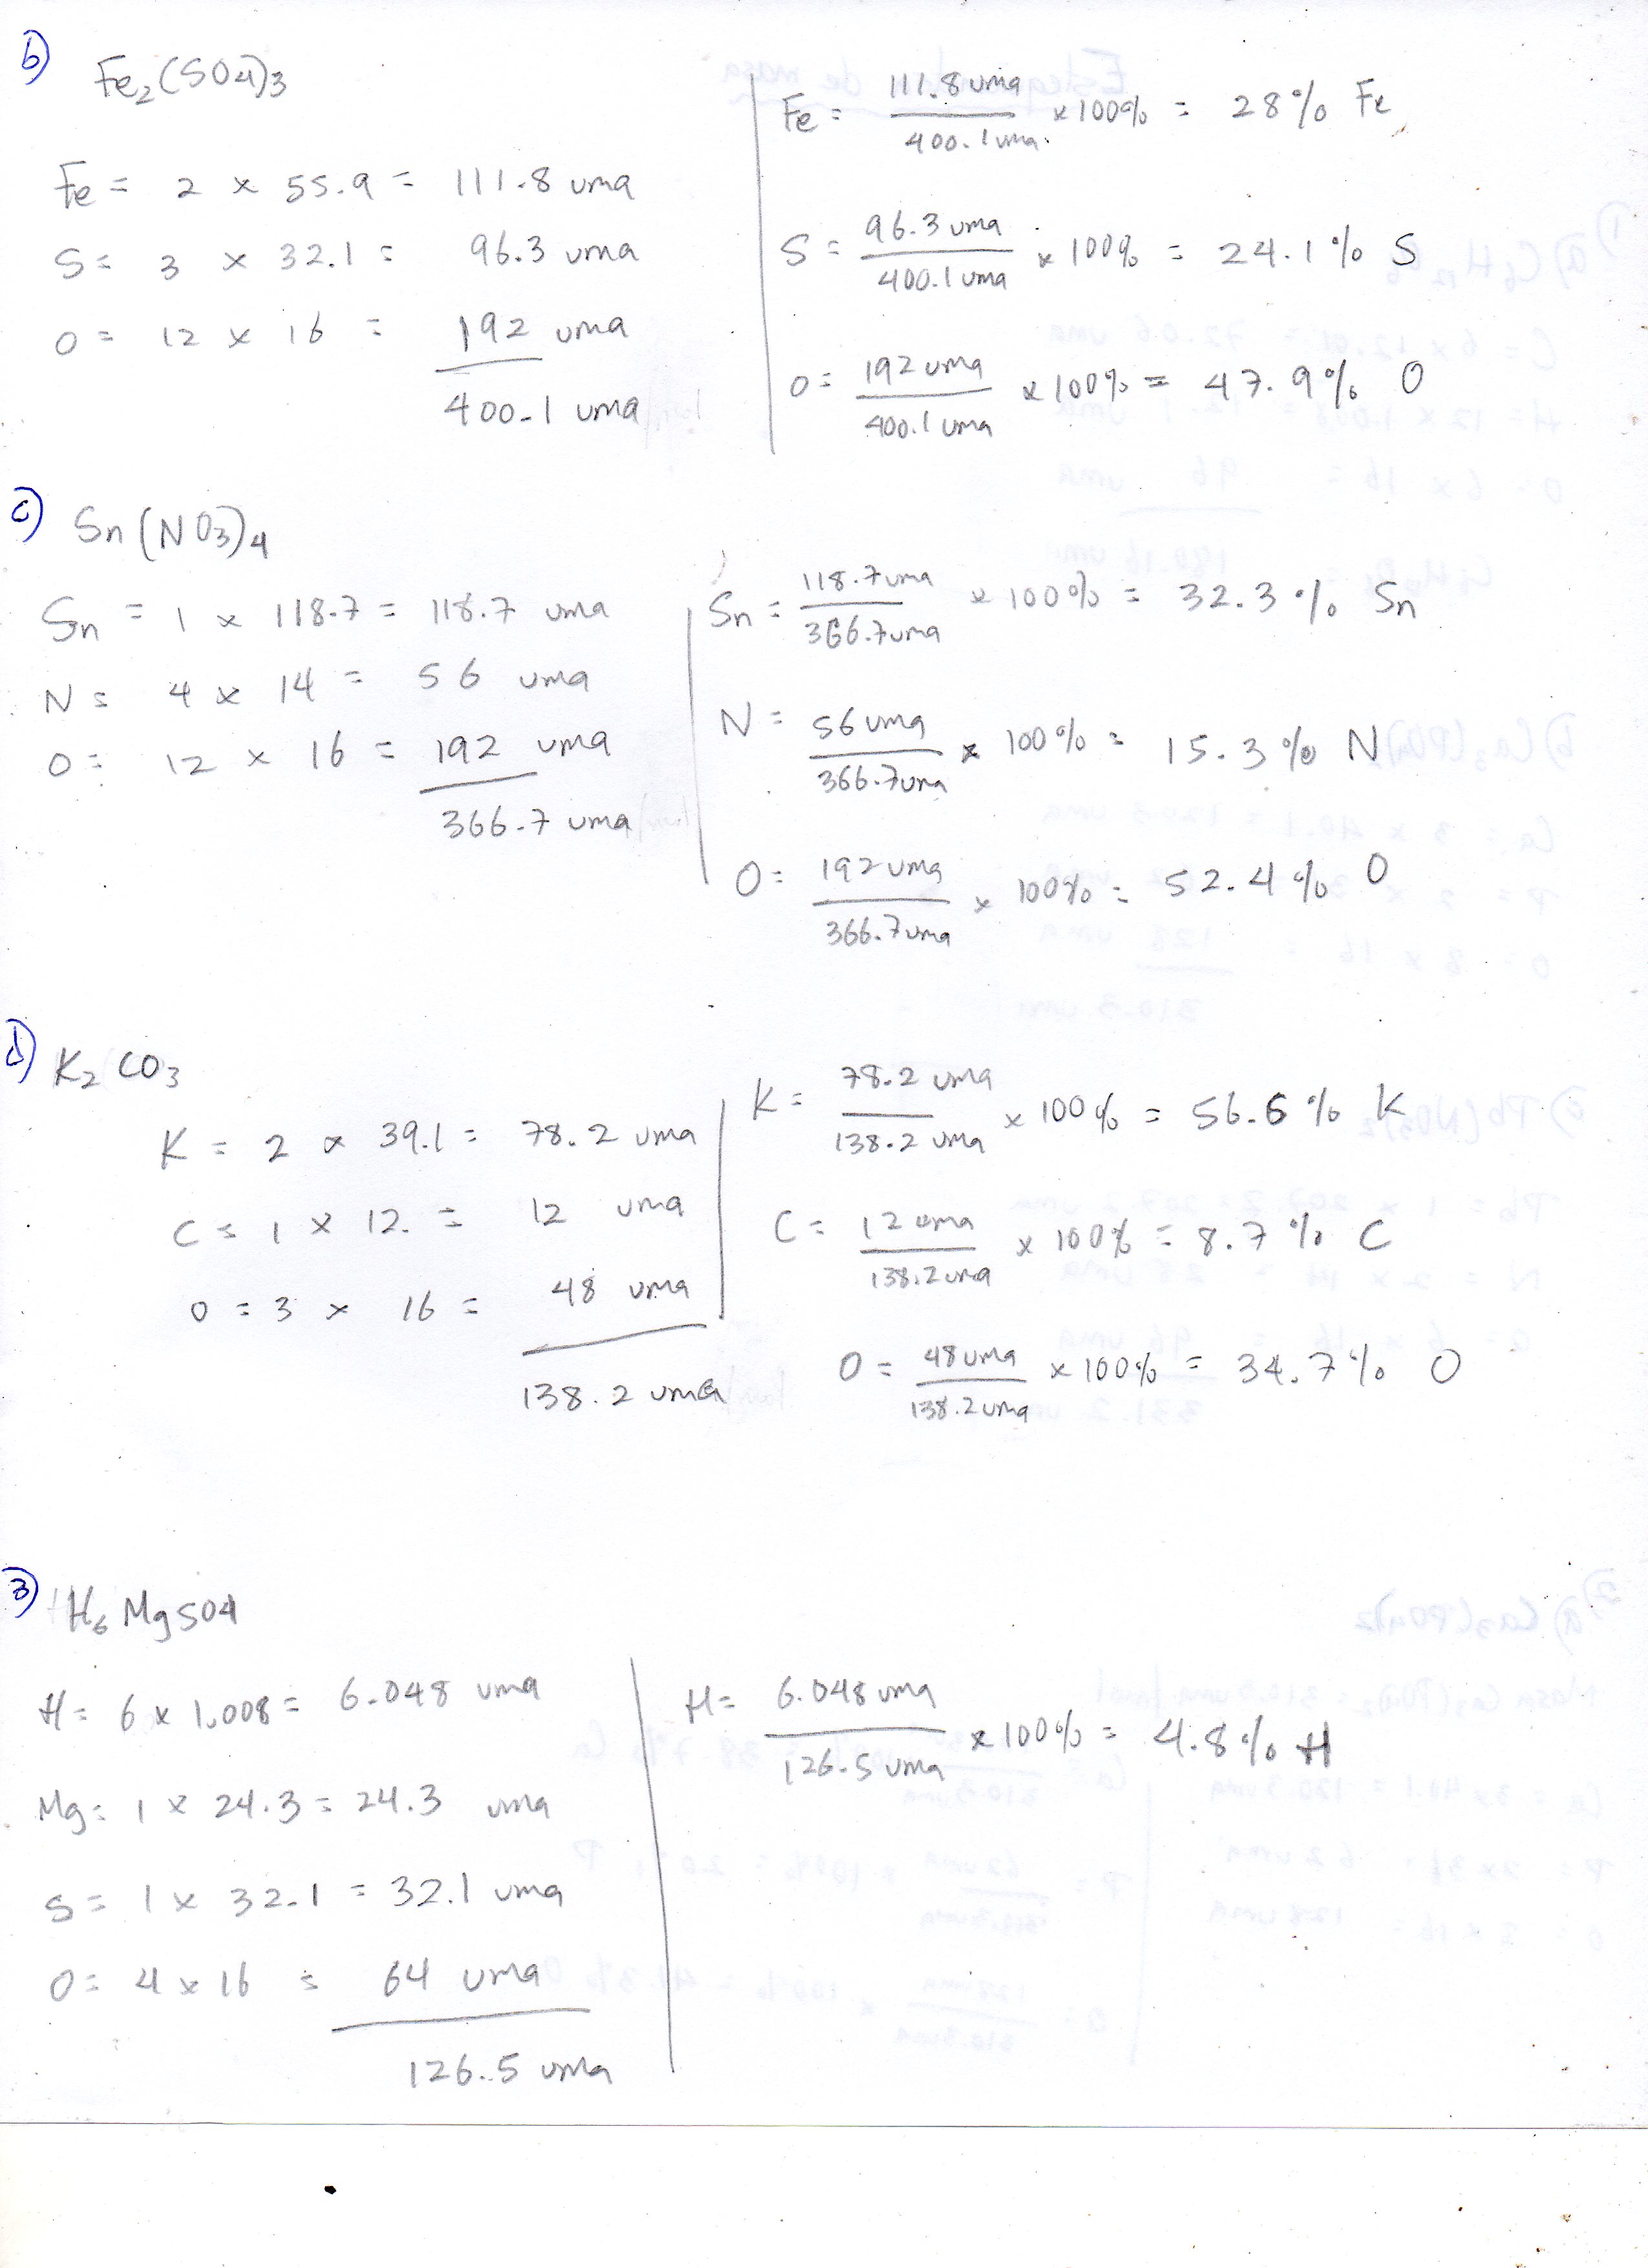 b) Fe₂(SO4)3
Fe = 2 x 55.9 = 111.8 uma
S = 3 x 32.1 = 96.3 uma
O = 12 x 16 = 192 uma
400.1 uma
Fe = 111.8 uma / 400.1 uma x 100% = 28% Fe
S = 96.3 uma / 400.1 uma x 100% = 24.1% S
O = 192 uma / 400.1 uma x 100% = 47.9% O
c) Sn(NO3)4
Sn = 1 x 118.7 = 118.7 uma
N = 4 x 14 = 56 uma
O = 12 x 16 = 192 uma
366.7 uma
Sn = 118.7 uma / 366.7 uma x 100% = 32.3% Sn
N = 56 uma / 366.7 uma x 100% = 15.3% N
O = 192 uma / 366.7 uma x 100% = 52.4% O
d) K₂CO₃
K = 2 x 39.1 = 78.2 uma
C = 1 x 12. = 12 uma
O = 3 x 16 = 48 uma
138.2 uma
K = 78.2 uma / 138.2 uma x 100% = 56.6% K
C = 12 uma / 138.2 uma x 100% = 8.7% C
O = 48 uma / 138.2 uma x 100% = 34.7% O
3) H₆MgSO4
H = 6 x 1.008 = 6.048 uma
Mg = 1 x 24.3 = 24.3 uma
S = 1 x 32.1 = 32.1 uma
O = 4 x 16 = 64 uma
126.5 uma
H = 6.048 uma / 126.5 uma x 100% = 4.8% H